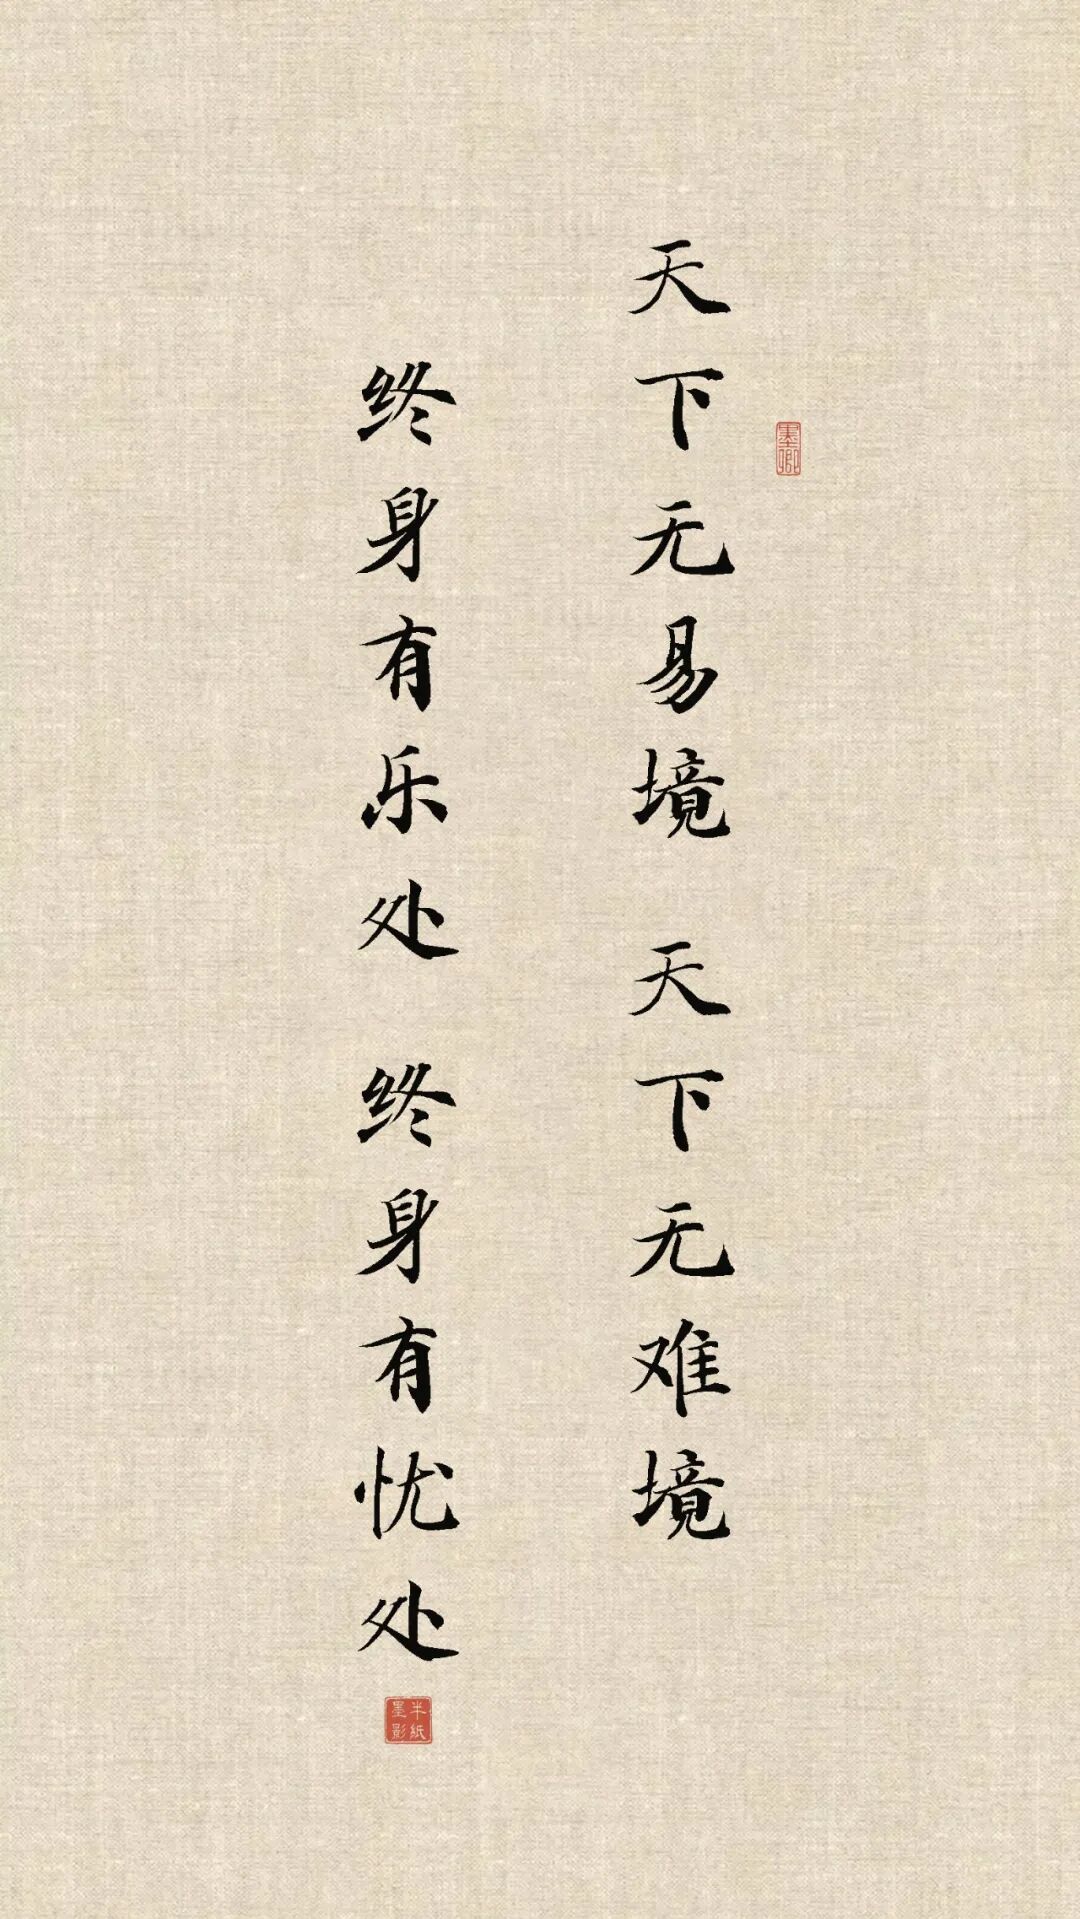 天下无易境 天下无难境
终身有乐处 终身有忧处
墨卿
半纸墨影